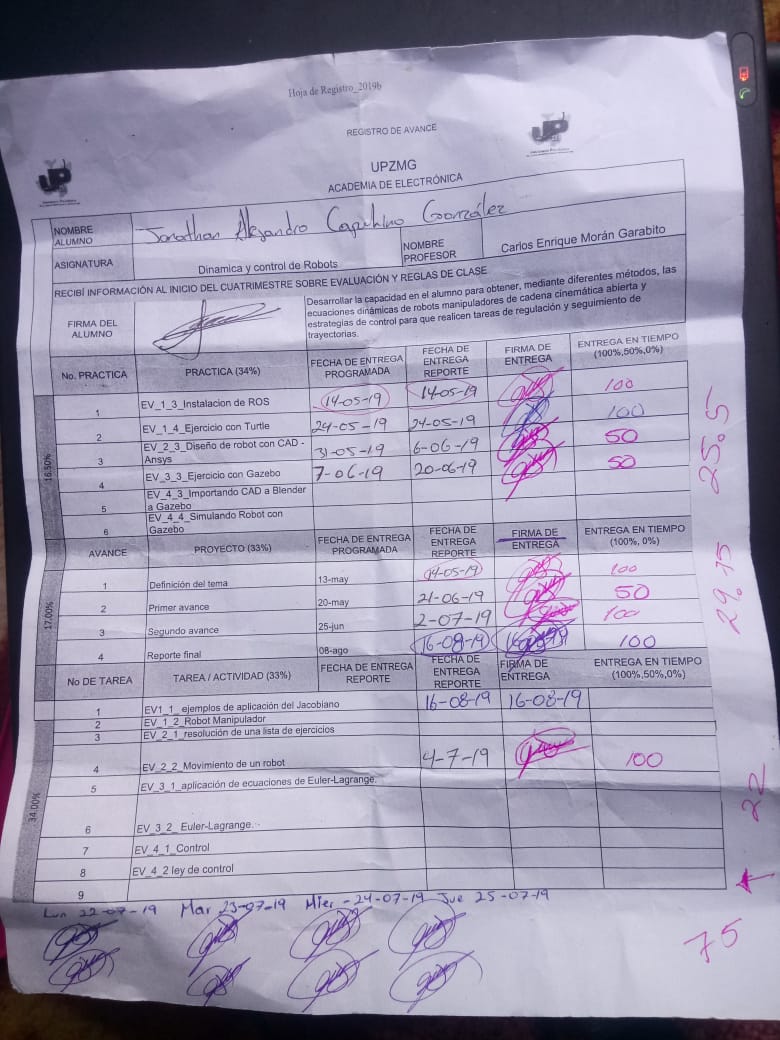 Hoja de Registro_2019b
REGISTRO DE AVANCE
UPZMG
ACADEMIA DE ELECTRÓNICA
NOMBRE ALUMNO Jonathan Alejandro González NOMBRE PROFESOR Carlos Enrique Morán Garabito
ASIGNATURA Dinamica y control de Robots
RECIBÍ INFORMACIÓN AL INICIO DEL CUATRIMESTRE SOBRE EVALUACIÓN Y REGLAS DE CLASE
FIRMA DEL ALUMNO
Desarrollar la capacidad en el alumno para obtener, mediante diferentes métodos, las
ecuaciones dinámicas de robots manipuladores de cadena cinemática abierta y
estrategias de control para que realicen tareas de regulación y seguimiento de
trayectorias.
No. PRACTICA PRACTICA (34%) FECHA DE ENTREGA PROGRAMADA FECHA DE ENTREGA REPORTE FIRMA DE ENTREGA ENTREGA EN TIEMPO (100%,50%,0%)
16.50%
1 EV_1_3_Instalacion de ROS 14-05-19 14-05-19 100
2 EV_1_4_Ejercicio con Turtle 24-05-19 24-05-19 100
3 EV_2_3_Diseño de robot con CAD - Ansys 31-05-19 6-06-19 50
4 EV_3_3_Ejercicio con Gazebo 7-06-19 20-06-19 50
5 EV_4_3_Importando CAD a Blender a Gazebo
6 EV_4_4_Simulando Robot con Gazebo
25.5
AVANCE PROYECTO (33%) FECHA DE ENTREGA PROGRAMADA FECHA DE ENTREGA REPORTE FIRMA DE ENTREGA ENTREGA EN TIEMPO (100%, 0%)
17.00%
1 Definición del tema 13-may 14-05-19 100
2 Primer avance 20-may 21-06-19 50
3 Segundo avance 25-jun 2-07-19 100
4 Reporte final 08-ago 16-08-19 16-08-19 100
29.15
No DE TAREA TAREA / ACTIVIDAD (33%) FECHA DE ENTREGA REPORTE FECHA DE ENTREGA REPORTE FIRMA DE ENTREGA ENTREGA EN TIEMPO (100%,50%,0%)
34.00%
1 EV1_1_ ejemplos de aplicación del Jacobiano 16-08-19 16-08-19
2 EV_1_2_Robot Manipulador
3 EV_2_1_resolución de una lista de ejercicios
4 EV_2_2_Movimiento de un robot 4-7-19 100
5 EV_3_1_aplicación de ecuaciones de Euler-Lagrange.
6 EV_3_2_ Euler-Lagrange.
7 EV_4_1_Control
8 EV_4_2 ley de control
9
22
Lun 22-07-19 Mar 23-07-19 Mier - 24-07-19 Jue 25-07-19
75